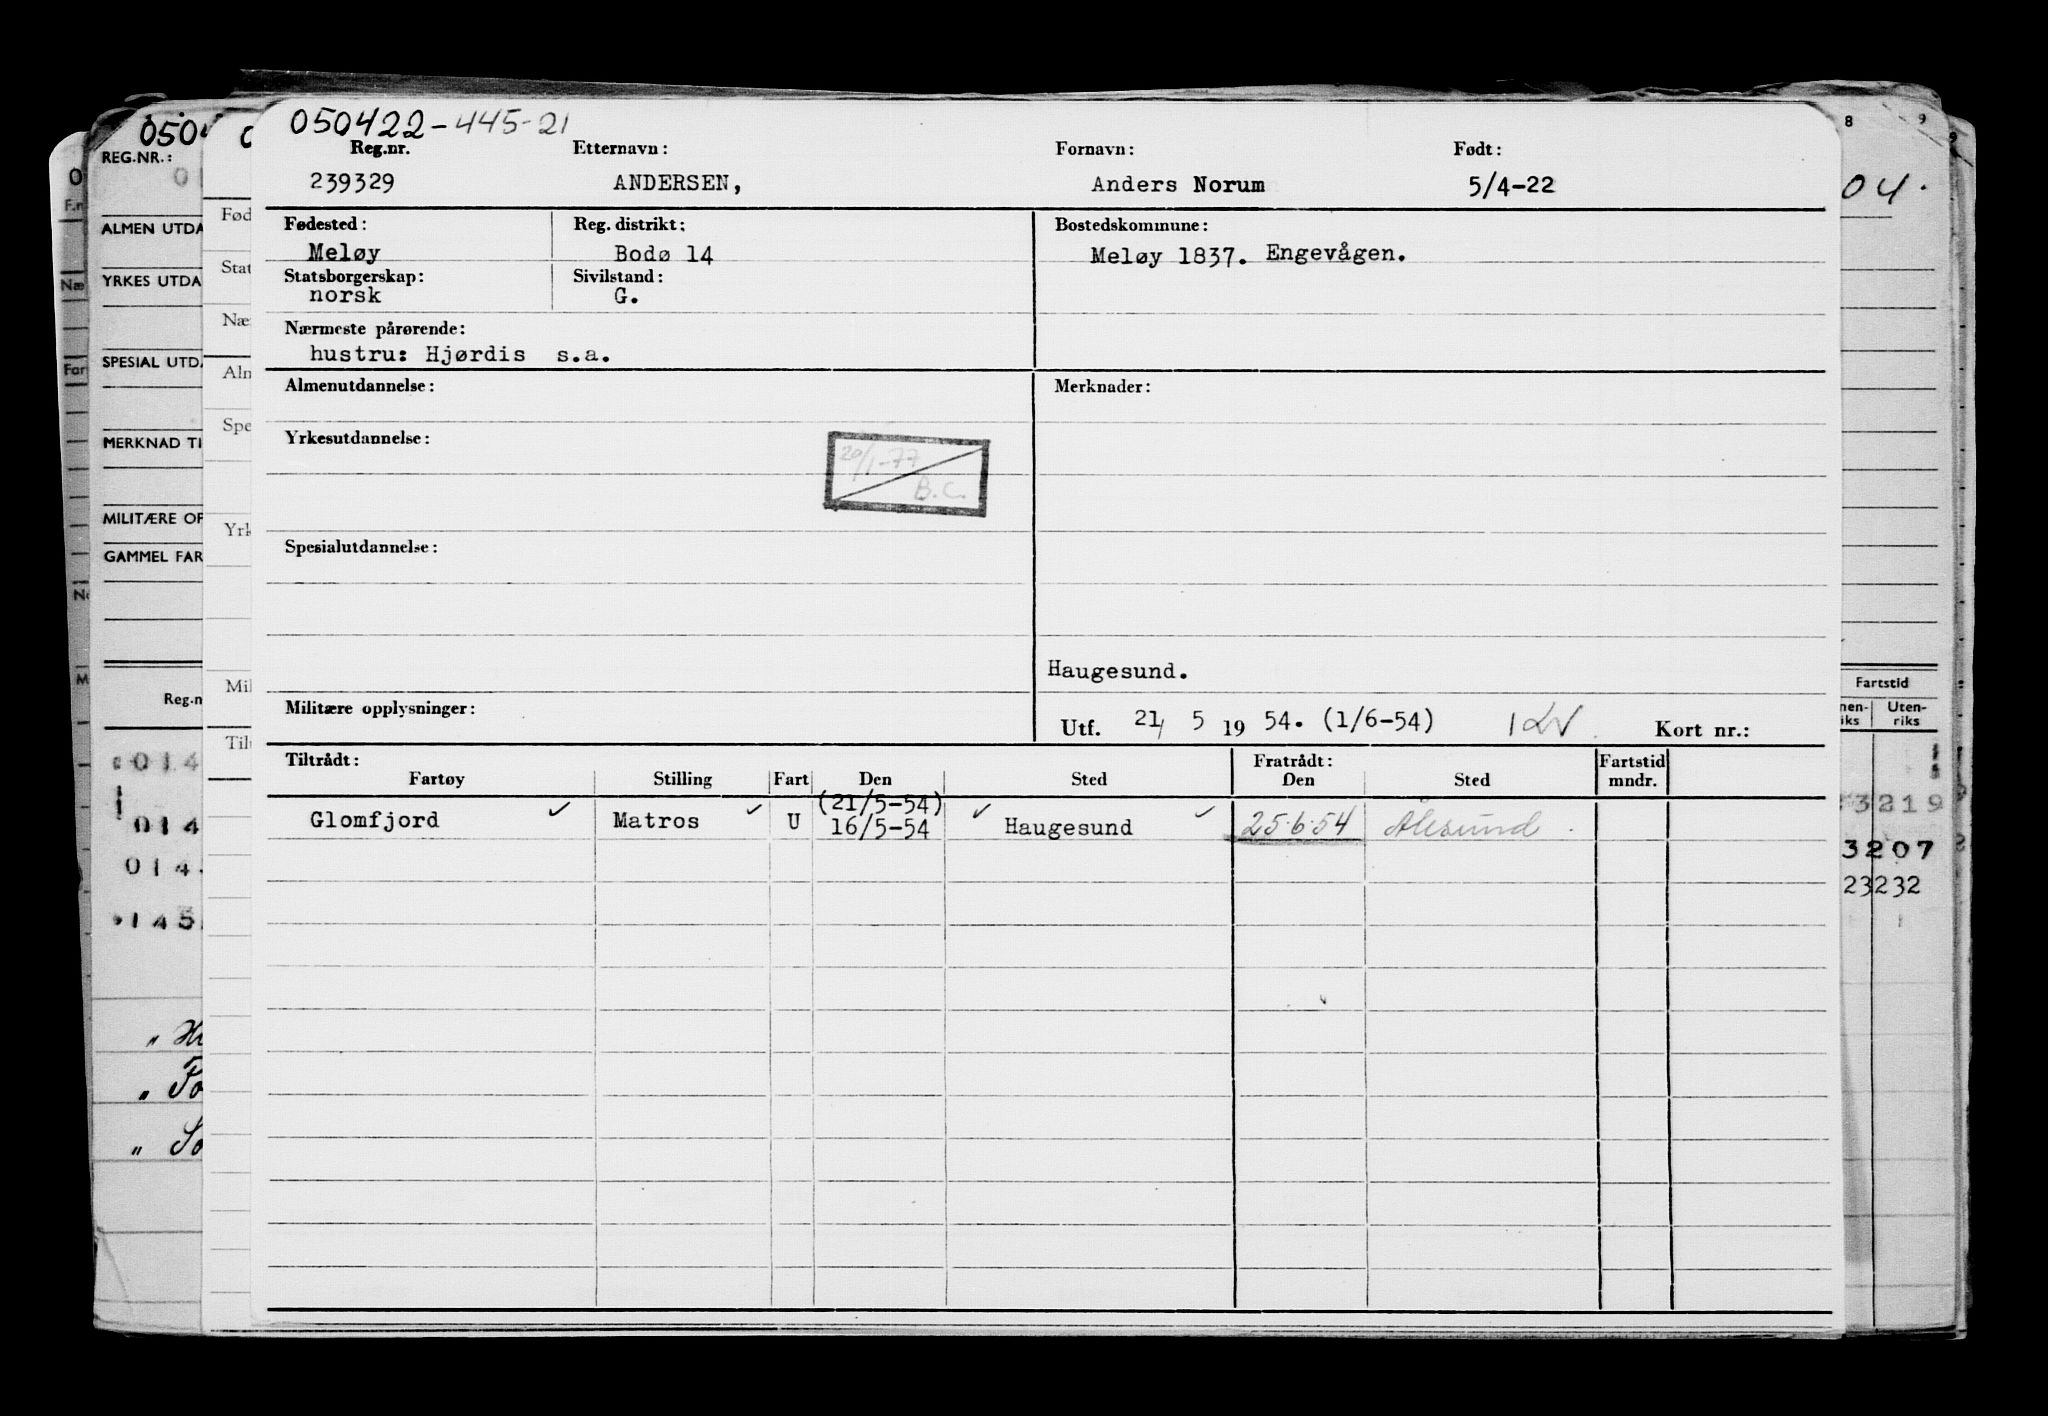 050422-445-21
Reg.nr. Etternavn: Fornavn: Født:
239329 ANDERSEN, Anders Norum 5/4-22
Fødested: Reg. distrikt: Bostedskommune:
Meløy Bodø 14 Meløy 1837. Engevågen.
Statsborgerskap: Sivilstand:
norsk G.
Nærmeste pårørende:
hustru: Hjørdis s.a.
Almenutdannelse: Merknader:
Yrkesutdannelse:
20/1-77
B.C.
Spesialutdannelse:
Haugesund.
Militære opplysninger:
Utf. 21/ 5 19 54. (1/6-54) Kort nr.:
Tiltrådt: Fratrådt: Fartstid
Fartøy Stilling Fart Den Sted Den Sted mndr.
(21/5-54)
Glomfjord Matros U 16/5-54 Haugesund 25.6.54 Ålesund
050
REG.NR.:
ALMEN UTDA
YRKES UTDA
SPESIAL UTD
MERKNAD TI
MILITÆRE OP
GAMMEL FAR
Reg.n
014
014
014
145
" He
" Fo
" So
Fød
Stat
Nær
Alm
Spe
Yrk
Mil
Tilt
8 9
04.
Fartstid
nen- Uten-
iks riks
3219
3207
23232